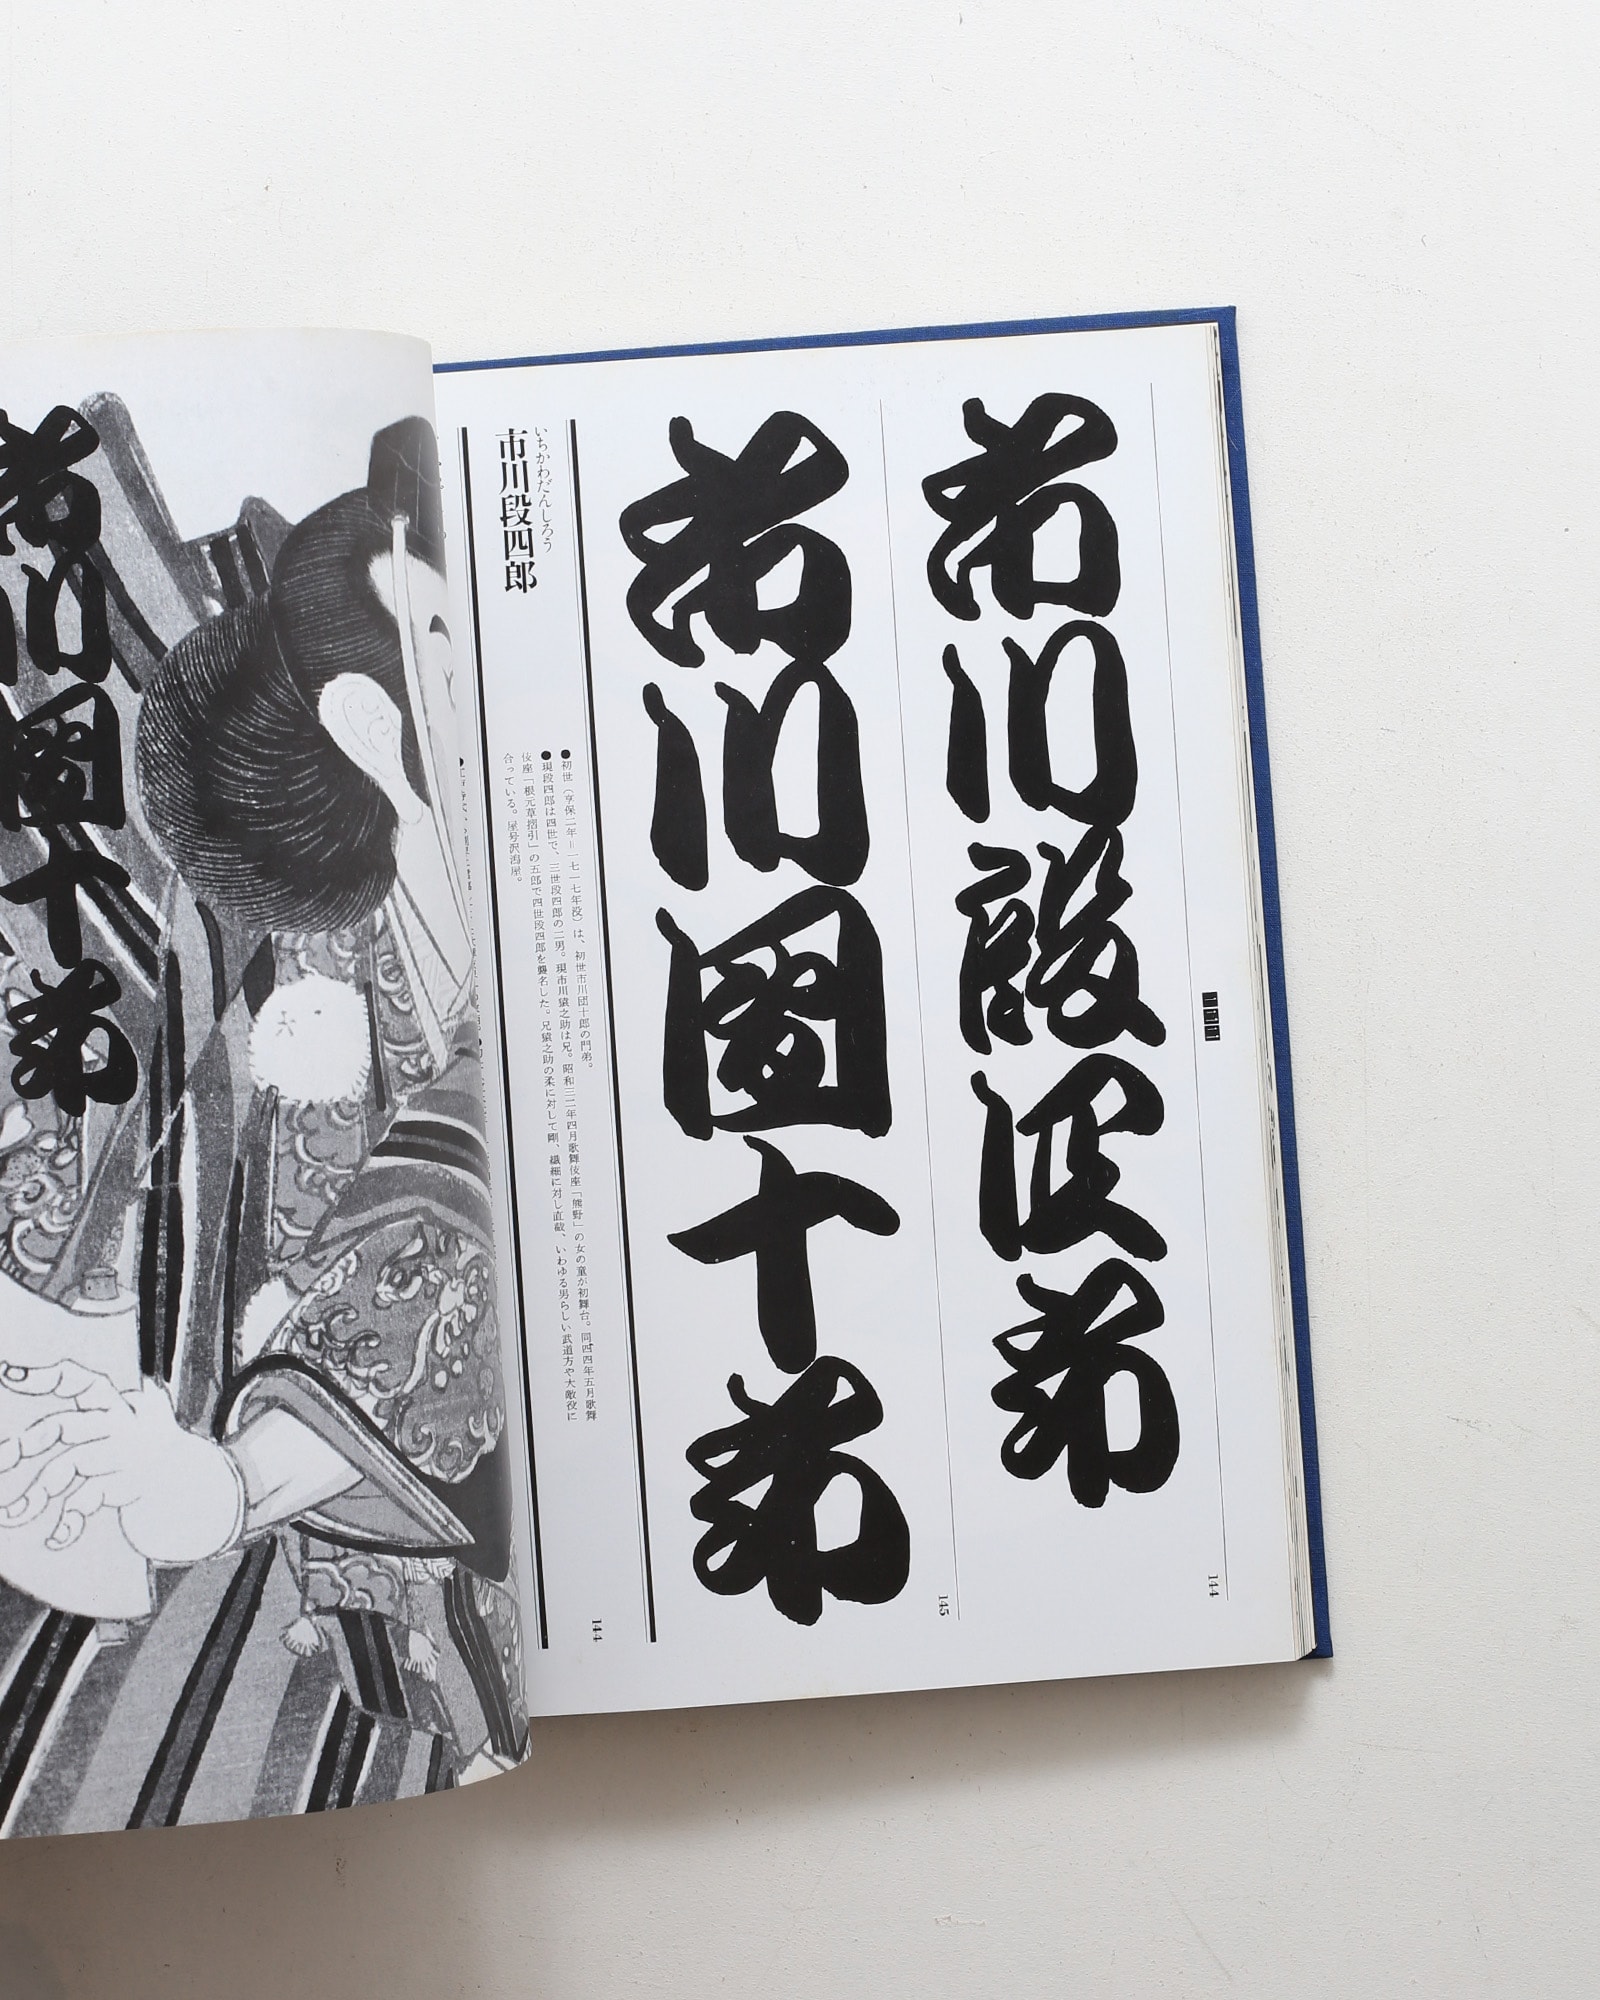 市川段四郎
144
市川團十郎
145
いちかわだんしろう
市川段四郎
●初世（亨保二年＝一七一七年没）は、初世市川団十郎の門弟。
●現段四郎は四世で、三世段四郎の二男。現市川猿之助は兄。昭和三二年四月歌舞伎座「熊野」の女の童が初舞台。同四四年五月歌舞
伎座「根元草摺引」の五郎で四世段四郎を襲名した。兄猿之助の柔に対して剛、繊細に対し直截、いわゆる男らしい武道方や大敵役に
合っている。屋号沢潟屋。
144
市川團十郎